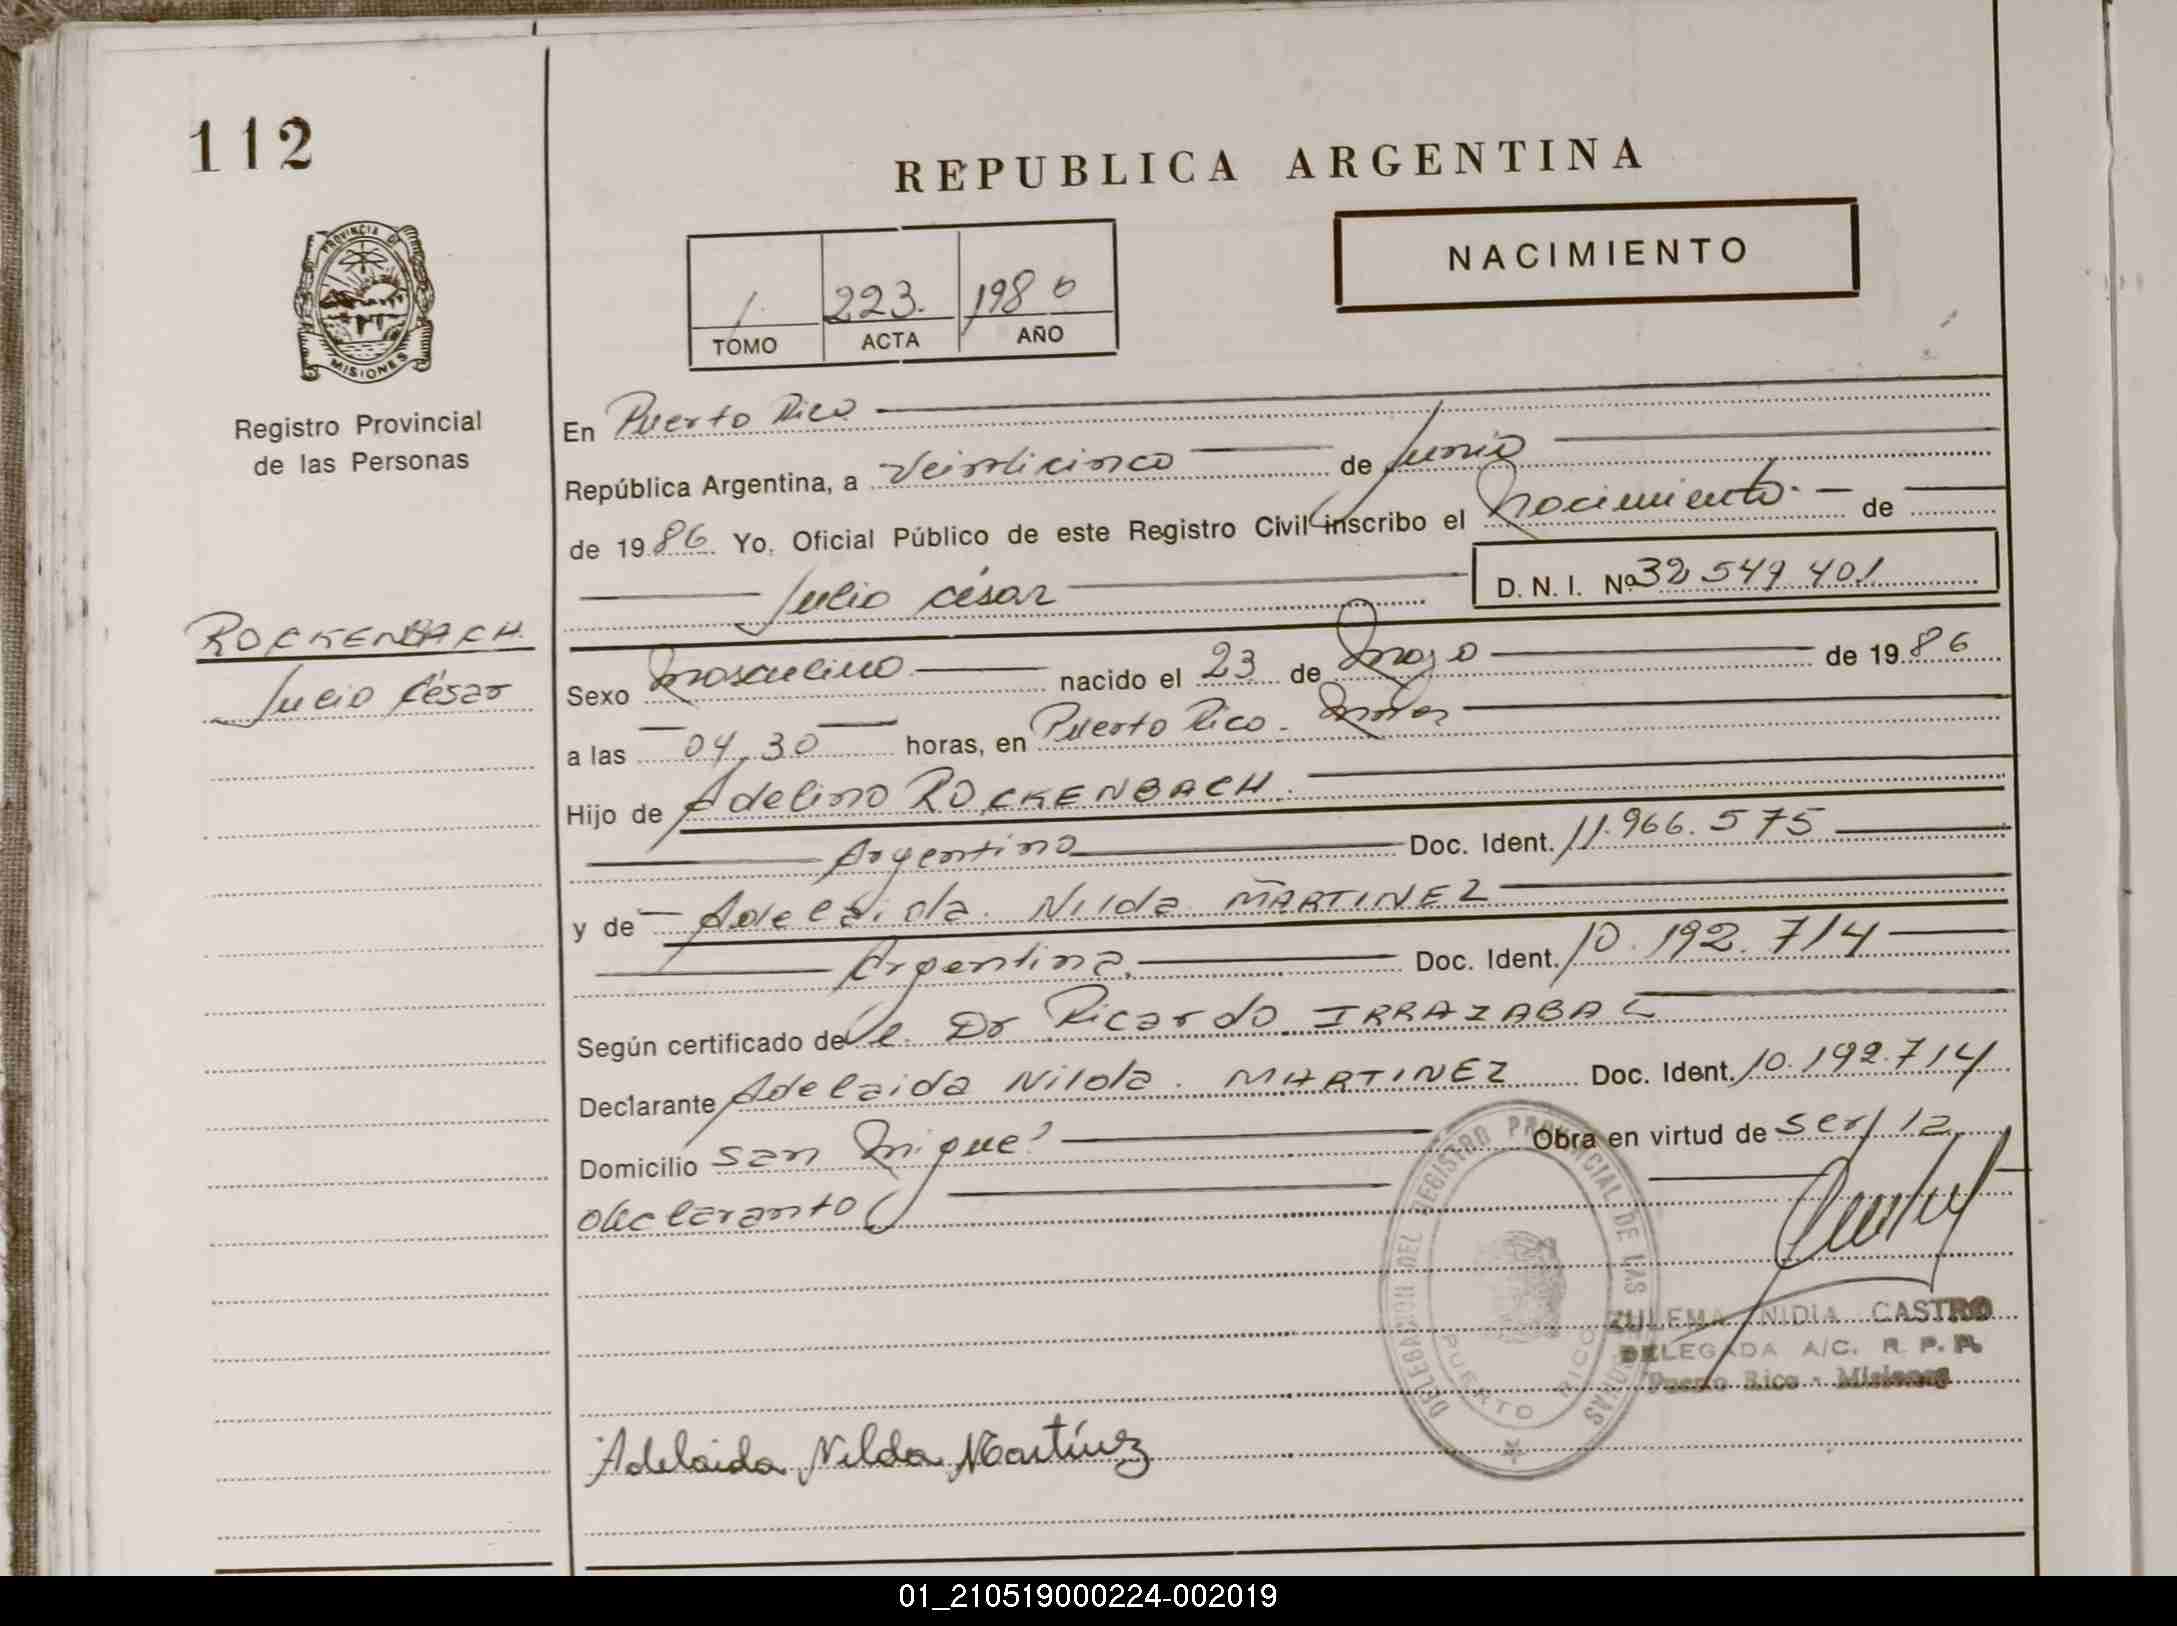 112
REPUBLICA ARGENTINA
NACIMIENTO
1 223. 1986
TOMO ACTA AÑO
PROVINCIA DE MISIONES
Registro Provincial
de las Personas
En Puerto Rico
República Argentina, a Veinticinco de Junio
de 1986 Yo, Oficial Público de este Registro Civil inscribo el Nacimiento de
Julio César D. N. I. Nº 32 549 401
ROCKENBACH
Julio César
Sexo Masculino nacido el 23 de Mayo de 1986
a las 04,30 horas, en Puerto Rico - Mnes
Hijo de Adelino ROCKENBACH.
Argentino Doc. Ident. 11.966.575
y de Adelaida Nilda MARTINEZ
Argentina. Doc. Ident. 10.192.714
Según certificado del Dr Ricardo IRRAZABAL
Declarante Adelaida Nilda MARTINEZ Doc. Ident. 10.192.714
Domicilio San Miguel Obra en virtud de ser la
declarante
DELEGACION DEL REGISTRO PROVINCIAL DE LAS PERSONAS
PUERTO RICO
ZULEMA NIDIA CASTRO
DELEGADA A/C. R. P. P.
Puerto Rico - Misiones
Adelaida Nilda Martínez
01_210519000224-002019